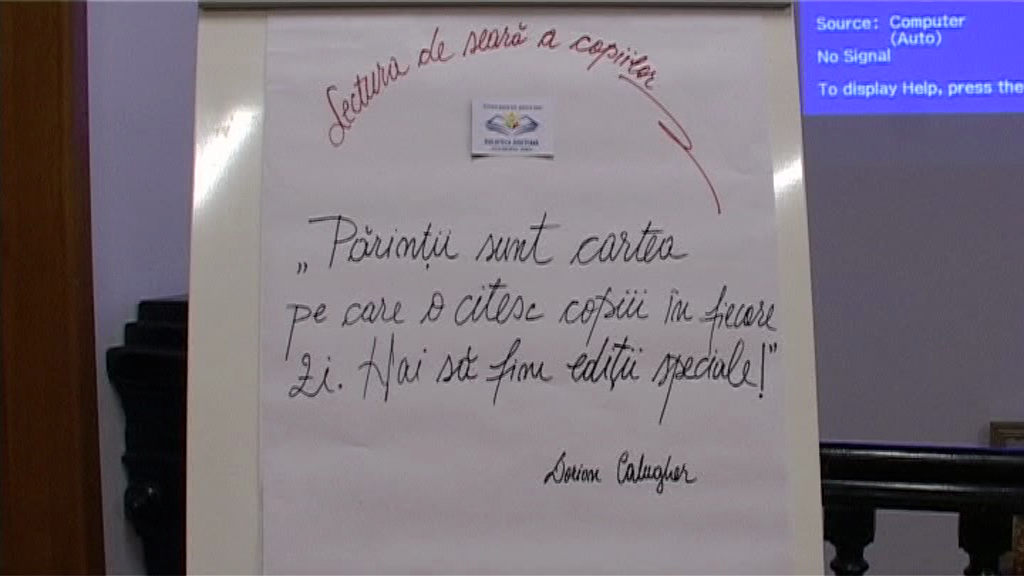 Lectura de seară a copiilor
„Părinții sunt cartea
pe care o citesc copiii în fiecare
zi. Hai să fim ediții speciale!”
Dorian Calugher
Source: Computer
(Auto)
No Signal
To display Help, press the